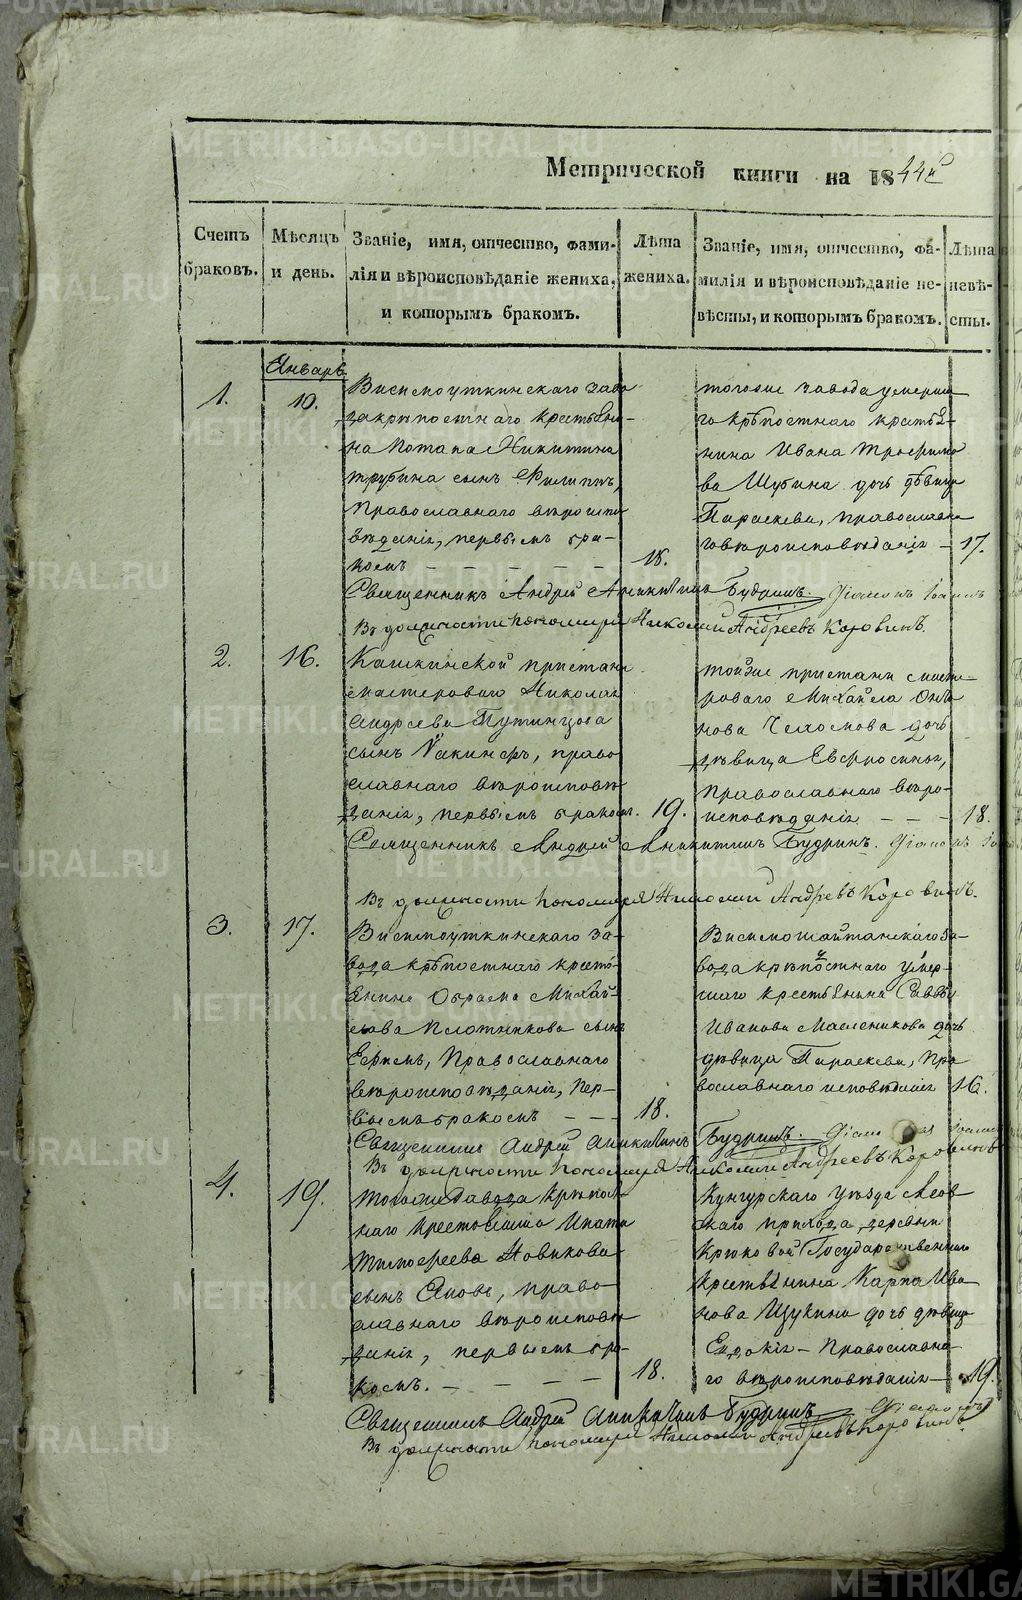 Метрической книги на 1844й
Счетъ браковъ.
Мѣсяцъ и день.
Званіе, имя, отчество, фами-
лія и вѣроисповѣданіе жениха,
и которымъ бракомъ.
Лѣта жениха.
Званіе, имя, отчество, фа-
милія и вѣроисповѣданіе не-
вѣсты, и которымъ бракомъ.
Лѣта невѣ-
сты.
Январь
1.
10.
Висимоуткинскаго заво
да крѣпостнаго крестьяни-
на Потапа Никитина
Трубина сынъ Филиппъ,
православнаго вѣроиспо
вѣданія, первымъ бра-
комъ
18.
тогоже завода умерша
го крѣпостнаго крестья-
нина Ивана Трофимо
ва Шубина дочь дѣвица
Параскева, православна
го вѣроисповѣданія 17.
Священникъ Андрей Аникитинъ Будринъ. Діаконъ
Въ должности пономаря Николай Андреевъ Коровинъ.
2.
16.
Кашкинской пристани
мастероваго Николая
Андреева Путинцова
сынъ Іакинфъ, право
славнаго вѣроисповѣ
данія, первымъ бракомъ. 19.
тойже пристани мастеро-
роваго Михайла
нова дочь
дѣвица Евфросинья,
православнаго вѣро-
исповѣданія 18.
Священникъ Андрей Аникитинъ Будринъ. Діаконъ
Въ должности пономаря Николай Андреевъ Коровинъ.
3.
17.
Висимоуткинскаго за-
вода крѣпостнаго кресть-
янина Михай-
лова Плотникова сынъ
Ефимъ, Православнаго
вѣроисповѣданія, Пер-
вымъ бракомъ 18.
Висимошайтанскаго за-
вода крѣпостнаго умер-
шаго крестьянина Саввы
Иванова Масленикова дочь
дѣвица Параскева, Пра
вославнаго исповѣданія 16.
Священникъ Андрей Аникитинъ Будринъ Діаконъ
Въ должности пономаря Николай Андреевъ Коровинъ
4.
19.
Тогоже Завода крѣпост-
наго крестьянина Ипата
Тимофеева Новикова
сынъ Яковъ, право
славнаго вѣроисповѣ
данія, первымъ бра-
комъ. 18.
Кунгурскаго Уѣзда
скаго прихода, деревни
Крюковой Государственнаго
крестьянина Карпа Ива
нова Щукина дочь дѣвица
Евдокія – Православна-
го вѣроисповѣданія 19.
Священникъ Андрей Аникитинъ Будринъ Діаконъ
Въ должности пономаря Николай Андреевъ Коровинъ
METRIKI.GASO-URAL.RU